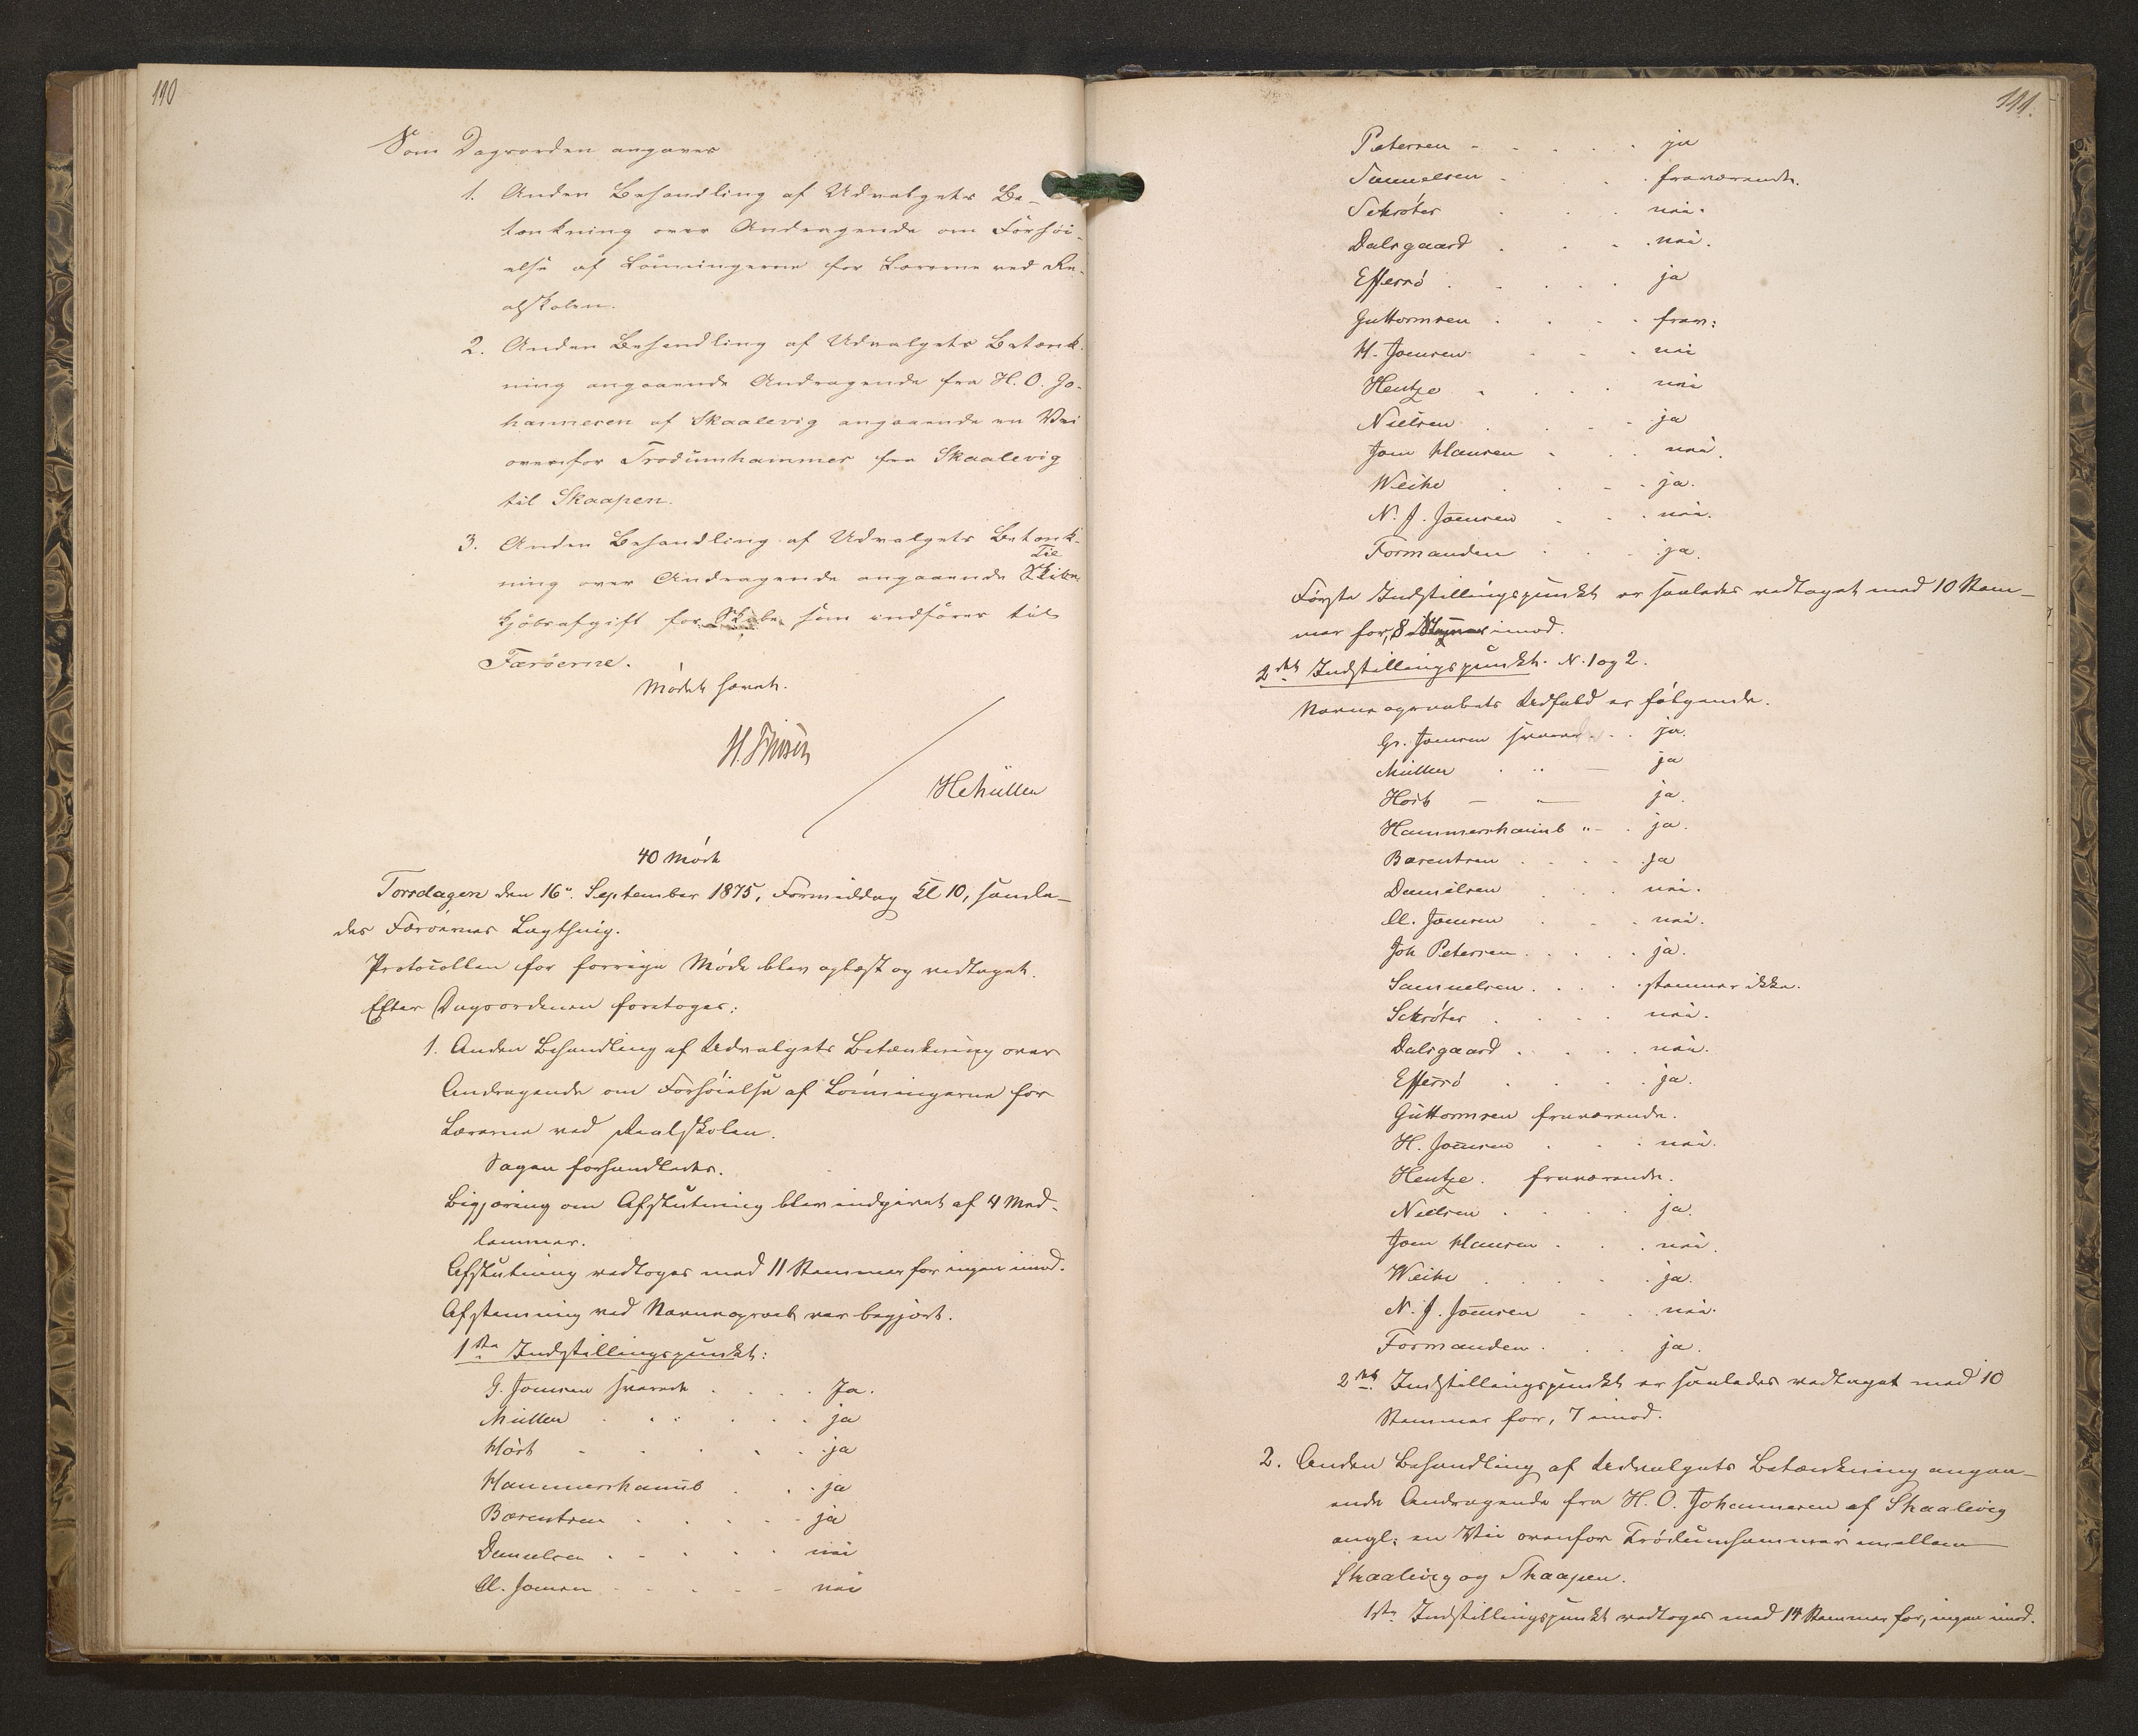 110
Som Dagsorden angaves
1. Anden Behandling af Udvalgets Be-
tænkning over Andragende om Forhøi-
else af Lønningerne for Lærerne ved Re-
alskolen.
2. Anden Behandling af Udvalgets Betænk-
ning angaaende Andragende fra H. O. Jo-
hannesen af Skaalevig angaaende en Vei
ovenfor Trødumhammer fra Skaalevig
til Skaapen.
3. Anden Behandling af Udvalgets Betænk-
ning over Andragende angaaende Til
Kjøbsafgift for Skibe som indføres til
Færøerne.
Mødet hævet.
HMüller
40 Møde
Torsdagen den 16de September 1875, Formiddag Kl 10, samle-
des Færøernes Lagthing.
Protocollen for forrige Møde blev oplæst og vedtaget.
Efter Dagsordenen foretoges:
1. Anden Behandling af Udvalgets Betænkning over
Andragende om Forhøielse af Lønningerne for
Lærerne ved Realskolen.
Sagen forhandledes.
Begjæring om Afslutning blev indgivet af 4 Med-
lemmer.
Afslutning vedtoges med 11 Stemmer for ingen imod.
Afstemning ved Navneopraab var begjært.
1ste Indstillingspunkt:
G. Joensen svarede . . . . Ja.
Müller . . . . . ja
Høst . . . . . ja
Hammershaimb . . . ja
Bærentsen . . . . . ja
Danielsen . . . . . nei
Ol. Joensen . . . . . nei
111.
Petersen . . . . . ja
Samuelsen . . . fraværende.
Schrøter . . . nei.
Dalsgaard . . . nei.
Effersø . . . . . ja
Guttormsen . . . . frav:
H. Joensen . . . nei
Hentze . . . . nei
Nielsen . . . . ja
Joen Hansen . . . nei.
Weihe . . . . ja.
N. J. Joensen . . . nei.
Formanden . . . ja.
Første Indstillingspunkt er saaledes vedtaget med 10 Stem-
mer for, 8 Stemmer imod.
2det Indstillingspunkt. N. 1 og 2.
Navneopraabets Udfald er følgende.
Gr. Joensen svarede . . ja.
Müller . " — ja
Høst — " — ja.
Hammershaimb " — . ja.
Bærentsen . . . . ja
Danielsen . . . nei.
Ol. Joensen . . . nei.
Joh Petersen . . . . . ja.
Samuelsen . . . . stemmer ikke.
Schrøter . . . . nei.
Dalsgaard . . . . nei.
Effersø . . . . ja.
Guttormsen fraværende.
H. Joensen . . . nei.
Hentze . fraværende.
Nielsen . . . . ja.
Joen Hansen . . . nei.
Weihe . . . . . ja.
N. J. Joensen . . nei.
Formanden . . . ja.
2det Indstillingspunkt er saaledes vedtaget med 10
Stemmer for, 7 imod.
2. Anden Behandling af Udvalgets Betænkning angaa-
ende Andragende fra H. O. Johannesen af Skaalevig
angl: en Vei ovenfor Trødumhammer imellem
Skaalevig og Skaapen.
1ste Indstillingspunkt vedtoges med 14 Stemmer for, ingen imod.